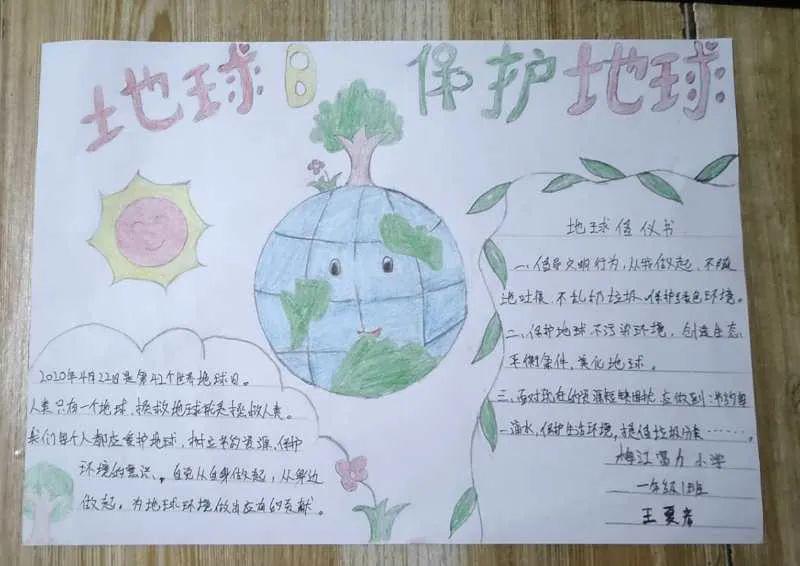 地球日 保护地球
2020年4月22日是第42个世界地球日。
人类只有一个地球，拯救地球就是拯救人类。
我们每个人都应爱护地球，树立节约资源、保护
环境的意识、。自觉从自身做起，从身边
做起，为地球环境做出应有的贡献。
地球倡仪书
一、倡导文明行为，从我做起，不随
地吐痰、不乱扔垃圾、保护绿色环境。
二、保护地球不污染环境，创造生态
平衡条件，美化地球。
三、面对现在的资源短缺困扰，应做到：节约每
一滴水，保护生活环境，提倡垃圾分类……。
梅江 小学
一年级1班
王夏